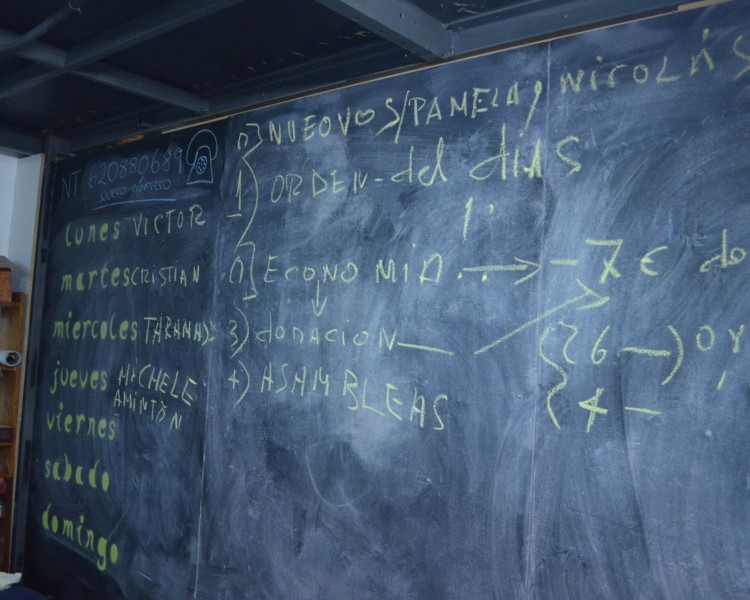 NT 620880689
nuevo número
lunes VICTOR
martes CRISTIAN
miercoles
jueves MICHELE
AMINTÖN
viernes
sabado
domingo
NUEOVOS/PAMELA y NICOLÁS
1) ORDEN-del dIAS
ECONOMIA . . → - 7 € do
3) donACION —
4) ASAMBLEAS
{ 26 — ) OY
{ 4 —